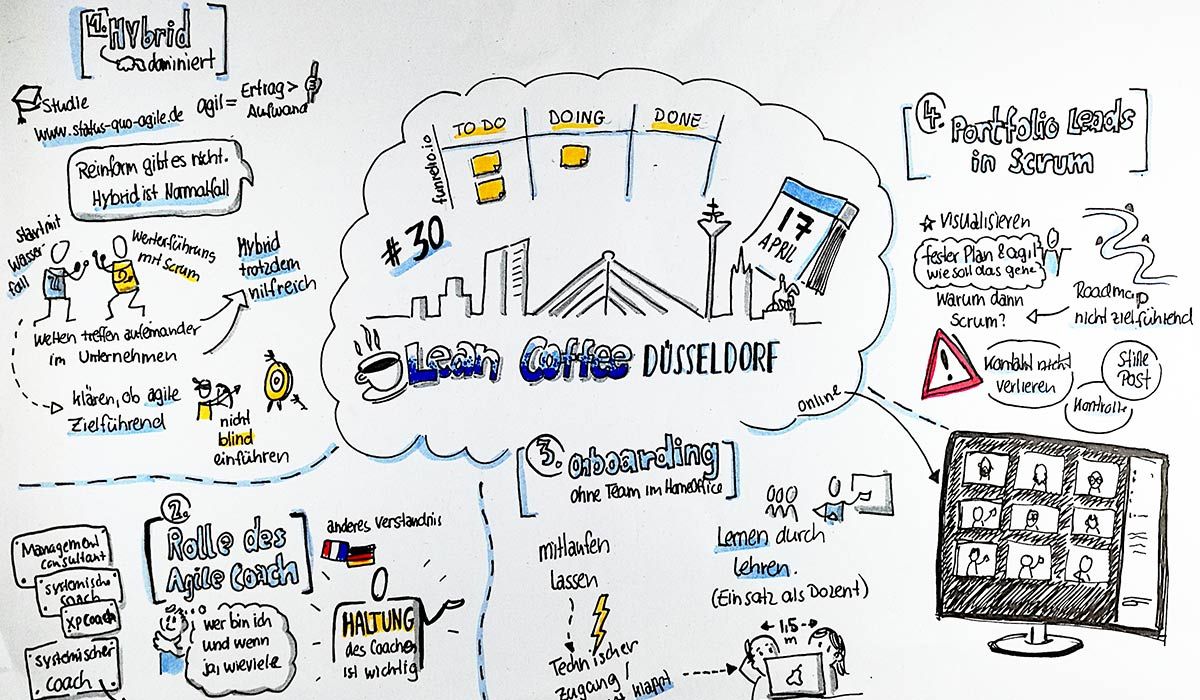 1. Hybrid
dominiert
Studie
www.status-quo-agile.de
agil = Ertrag >
Aufwand
Reinform gibt es nicht.
Hybrid ist Normalfall
Start mit
Wasser
fall
Weiterführung
mit Scrum
Hybrid
trotzdem
hilfreich
Welten treffen aufeinander
im Unternehmen
klären, ob agile
Zielführend
nicht
blind
einführen
funretro.io
TO DO
DOING
DONE
#30
17
APRIL
Lean Coffee DÜSSELDORF
online
2.
Rolle des
Agile Coach
Management
Consultant
systemische
coach
XP Coach
systemischer
coach
wer bin ich
und wenn
ja, wieviele
anderes Verständnis
HALTUNG
des Coaches
ist wichtig
3. Onboarding
ohne Team im HomeOffice
mitlaufen
lassen
Technischer
Zugang /
klappt
Lernen durch
Lehren.
(Einsatz als Dozent)
1,5
m
4. Portfolio Leads
in Scrum
Visualisieren
fester Plan & agil
wie soll das gehen
Warum dann
Scrum?
Roadmap
nicht zielführend
!
Kontakt nicht
verlieren
Stille
Post
Kontrolle